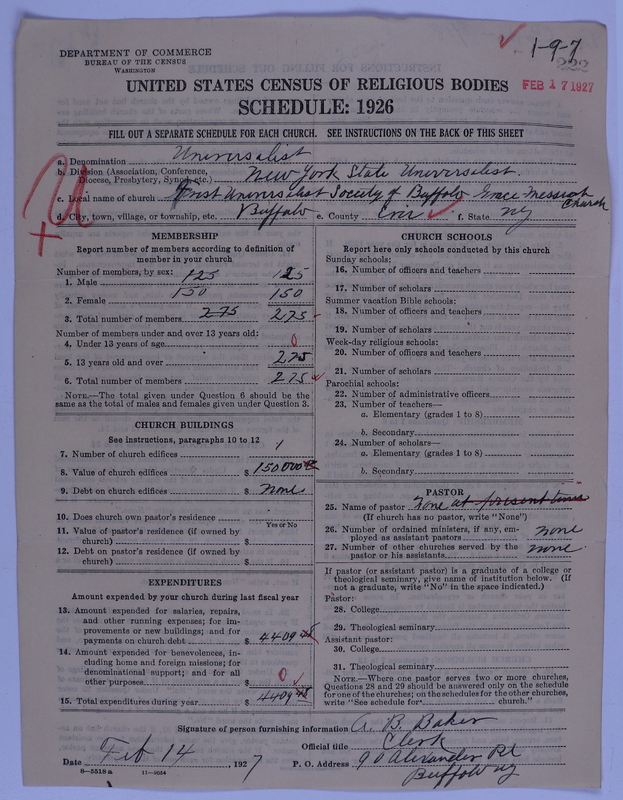 DEPARTMENT OF COMMERCE
BUREAU OF THE CENSUS
WASHINGTON
1-9-7
222
UNITED STATES CENSUS OF RELIGIOUS BODIES
FEB 17 1927
SCHEDULE: 1926
FILL OUT A SEPARATE SCHEDULE FOR EACH CHURCH. SEE INSTRUCTIONS ON THE BACK OF THIS SHEET
a. Denomination Universalist
b. Division (Association, Conference, Diocese, Presbytery, Synod, etc.) New York State Universalist.
c. Local name of church First Universalist Society of Buffalo Grace Messiah Church
d. City, town, village, or township, etc. Buffalo e. County Erie f. State NY
MEMBERSHIP
Report number of members according to definition of
member in your church
Number of members, by sex:
1. Male 125 125
2. Female 150 150
3. Total number of members 275 275
Number of members under and over 13 years old:
4. Under 13 years of age 0
5. 13 years old and over 275
6. Total number of members 275
NOTE.—The total given under Question 6 should be
same as the total of males and females given under Question 3.
CHURCH BUILDINGS
See instructions, paragraphs 10 to 12
7. Number of church edifices 1
8. Value of church edifices $ 150000
9. Debt on church edifices $ none
10. Does church own pastor's residence
Yes or No
11. Value of pastor's residence (if owned by
church) $
12. Debt on pastor's residence (if owned by
church) $
EXPENDITURES
Amount expended by your church during last fiscal year
13. Amount expended for salaries, repairs,
and other running expenses; for im-
provements or new buildings; and for
payments on church debt $ 4409
14. Amount expended for benevolences, in-
cluding home and foreign missions; for
denominational support; and for all
other purposes $ 0
15. Total expenditures during year $ 4409 48
CHURCH SCHOOLS
Report here only schools conducted by this church
Sunday schools:
16. Number of officers and teachers
17. Number of scholars
Summer vacation Bible schools:
18. Number of officers and teachers
19. Number of scholars
Week-day religious schools:
20. Number of officers and teachers
21. Number of scholars
Parochial schools:
22. Number of administrative officers
23. Number of teachers—
a. Elementary (grades 1 to 8)
b. Secondary
24. Number of scholars—
a. Elementary (grades 1 to 8)
b. Secondary
PASTOR
25. Name of pastor None at present time
(If church has no pastor, write "None")
26. Number of ordained ministers, if any, em-
ployed as assistant pastors none
27. Number of other churches served by the
pastor or his assistants none
If pastor (or assistant pastor) is a graduate of a college or
theological seminary, give name of institution below. (If
not a graduate, write "No" in the space indicated.)
Pastor:
28. College
29. Theological seminary
Assistant pastor:
30. College
31. Theological seminary
NOTE.—Where one pastor serves two or more churches,
Questions 28 and 29 should be answered only on the schedule
for one of the churches; on the schedules for the other churches,
write "See schedule for church."
Signature of person furnishing information A. B. Baker
Official title Clerk
Date Feb 14, 1927 P. O. Address 90 Alexander Pl
Buffalo NY
8-5518a 11-9034